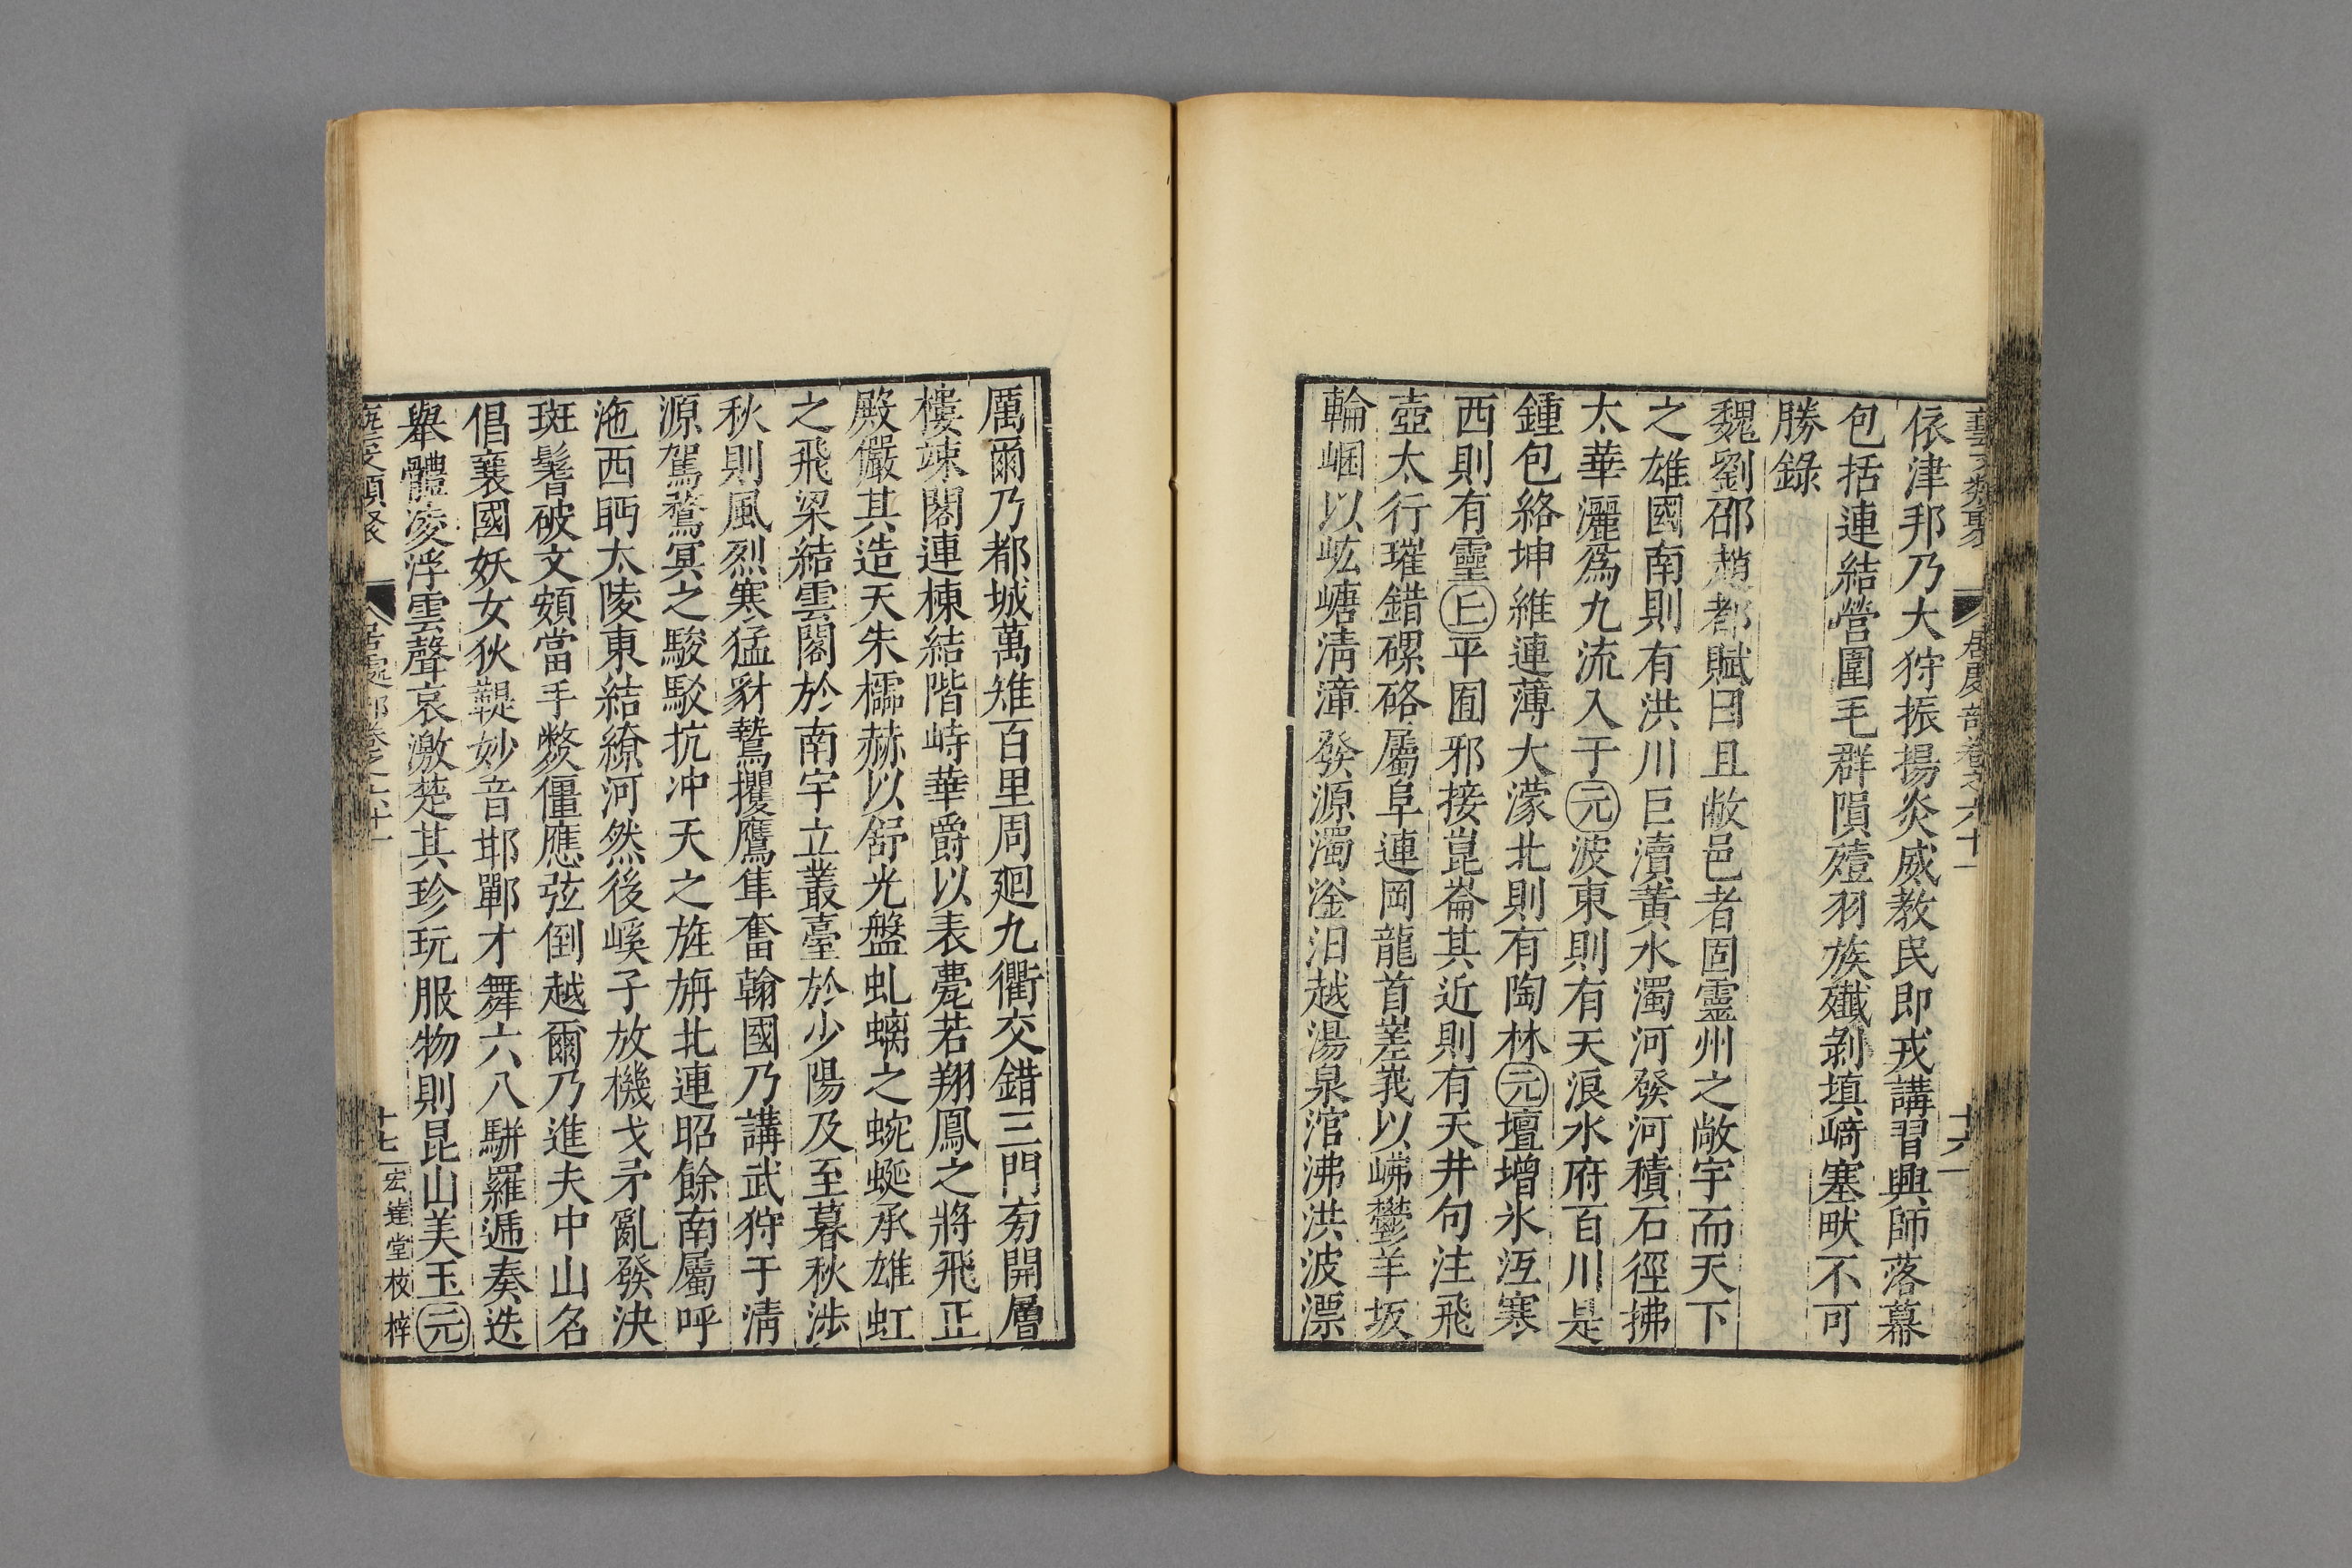 藝文類聚 居處部卷之六十一 十六
依津邦乃大狩振揚炎威教民即戎講習興師落幕
包括連結營圍毛群隕殪羽族殲剝填崎塞畎不可
勝錄
魏劉邵趙都賦曰且敞邑者固靈州之敞宇而天下
之雄國南則有洪川巨瀆黃水濁河發河積石徑拂
太華灑為九流入于元波東則有天浪水府百川是
鍾包絡坤維連薄大濛北則有陶林元壇增氷沍寒
西則有靈丘平囿邪接崑崙其近則有天井句注飛
壺太行璀錯磥硌屬阜連岡龍首嵳峩以岪鬱羊坂
輪崓以岭嵣清漳發源濁滏汩越湯泉涫沸洪波漂
厲爾乃都城萬雉百里周廻九衢交錯三門旁開層
樓竦閣連棟結階峙華爵以表甍若翔鳳之將飛正
殿儼其造天朱櫺赫以舒光盤虬螭之蜿蜒承雄虹
之飛梁結雲閣於南宇立叢臺於少陽及至暮秋涉
秋則風烈寒猛豺鷙攫鷹隼奮翰國乃講武狩于清
源駕鶩冥之駿駁抗冲天之旌旃北連昭餘南屬呼
沲西眄太陵東結繚河然後嵠子放機戈矛亂發決
班髾破文頞當手斃僵應弦倒越爾乃進夫中山名
倡襄國妖女狄鞮妙音邯鄲才舞六八駢羅遞奏迭
舉體凌浮雲聲哀激楚其珍玩服物則昆山美玉元
藝文類聚 居處部卷之六十一 十七 宏達堂校梓